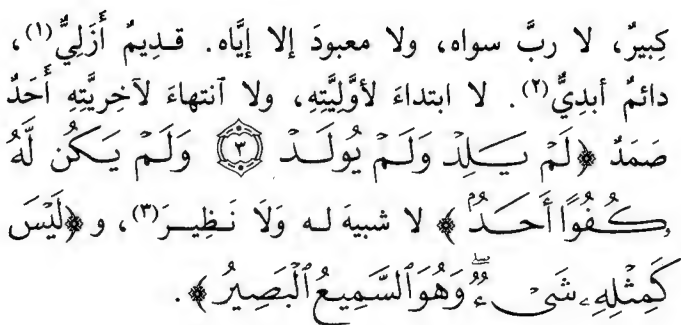 كَبِيرٌ، لا ربَّ سواه، ولا معبودَ إلا إيَّاه. قديمٌ أَزَلِيٌّ(١)،
دائمٌ أبديٌّ(٢). لا ابتداءَ لأوَّليَّتِهِ، ولا آنتهاءَ لآخِريَّتِهِ أَحَدٌ
صَمَدٌ ﴿لَمْ يَلِدْ وَلَمْ يُولَدْ ۝٣ وَلَمْ يَكُن لَّهُۥ
كُفُوًا أَحَدٌۢ﴾ لا شبيهَ له وَلَا نَظِيرَ(٣)، و ﴿لَيْسَ
كَمِثْلِهِۦ شَىْءٌۖ وَهُوَ ٱلسَّمِيعُ ٱلْبَصِيرُ﴾.